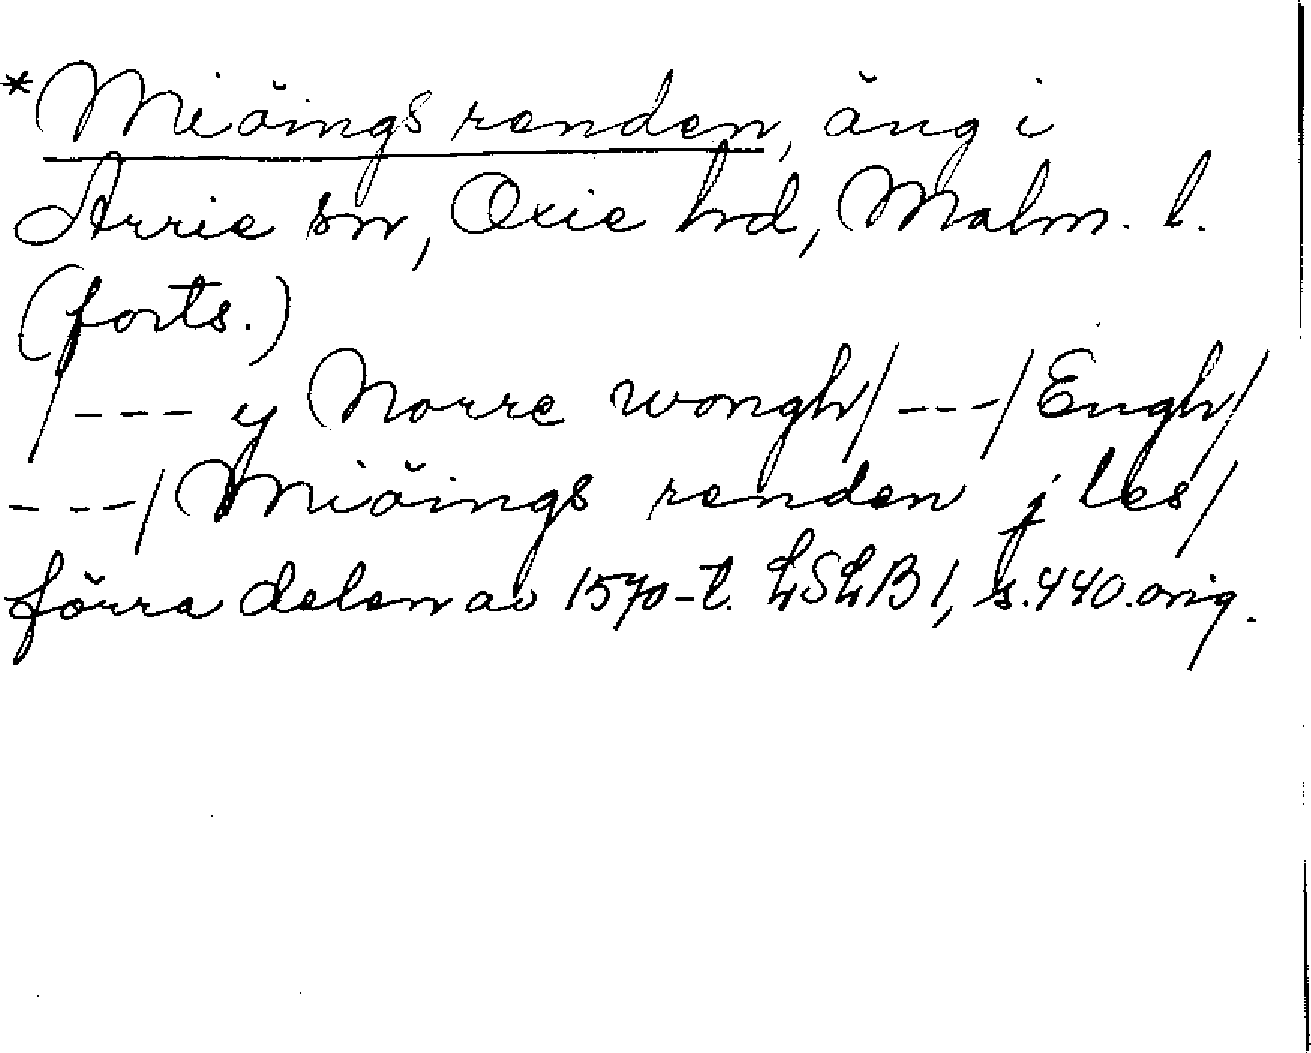 *Miöings renden, äng i
Arrie sn, Oxie hd, Malm. l.
(forts.)
/--- y Norre wongh/---/Engh/
---/Miöings renden j les/
förra delen av 1570-t. LSLB1, s.440.orig.